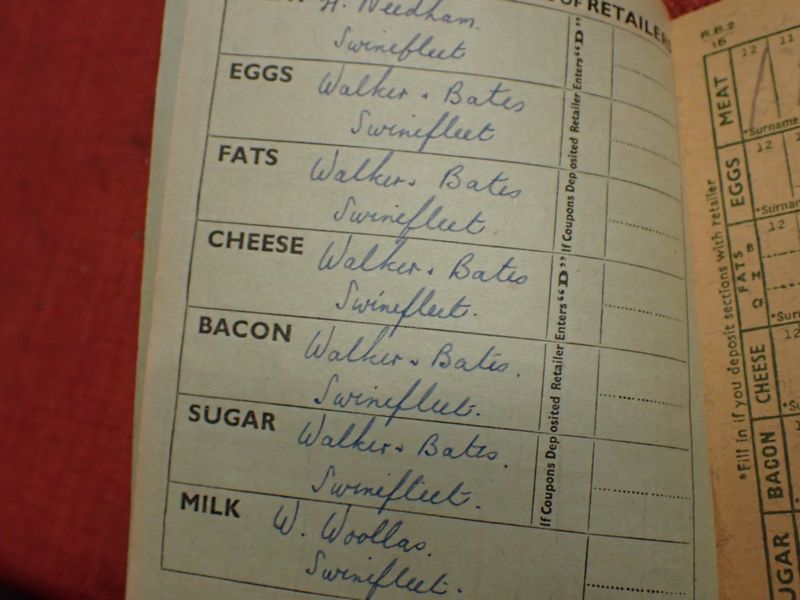 OF RETAILERS
H. Needham.
Swinefleet
EGGS Walker & Bates
Swinefleet
FATS Walker & Bates
Swinefleet.
CHEESE Walker & Bates
Swinefleet.
BACON Walker & Bates.
Swinefleet.
SUGAR Walker & Bates.
Swinefleet.
MILK W. Woollas.
Swinefleet.
If Coupons Deposited Retailer Enters "D"
If Coupons Deposited Retailer Enters "D"
R.B.2
16
*Fill in if you deposit sections with retailer
MEAT
12 11
*Surname
EGGS
12
*Surnam
FATS
12
CHEESE
12
BACON
UGAR